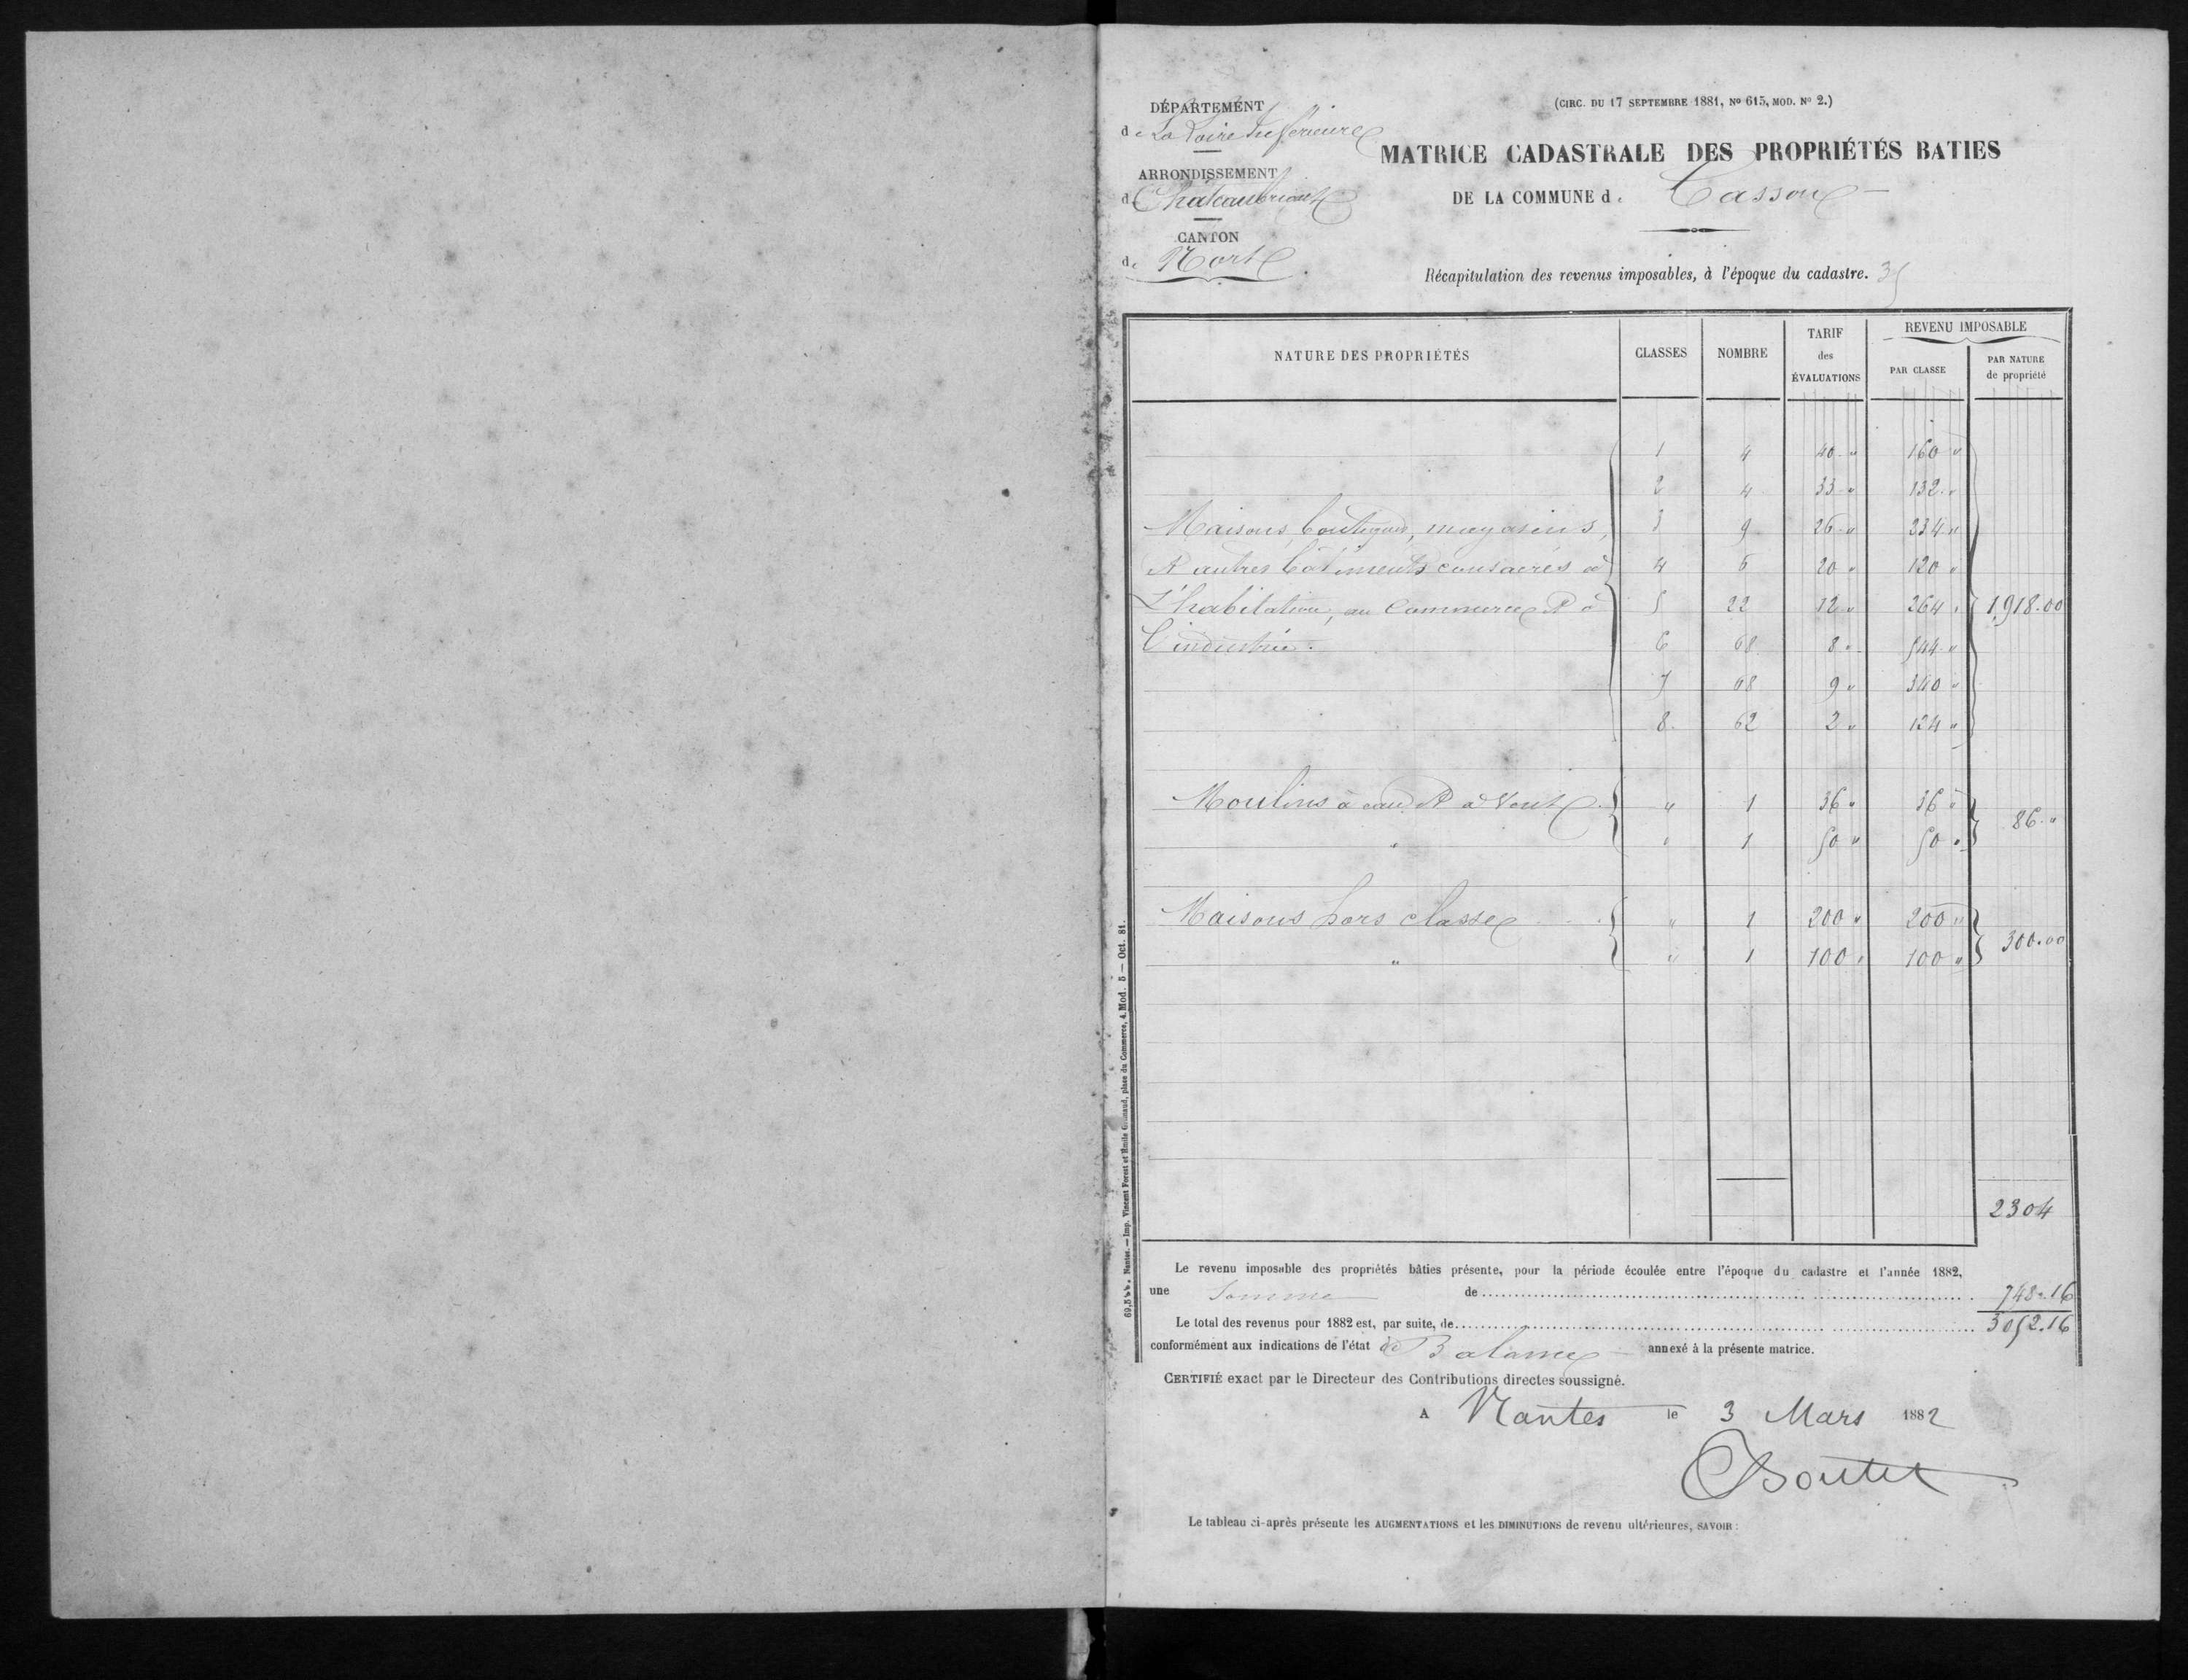 DÉPARTEMENT
de La Loire Inférieure
ARRONDISSEMENT
d Chateaubriant
CANTON
de Nort
(CIRC. DU 17 SEPTEMBRE 1881, No 615, MOD. No 2.)
MATRICE CADASTRALE DES PROPRIÉTÉS BATIES
DE LA COMMUNE de Casson
Récapitulation des revenus imposables, à l'époque du cadastre. 35
NATURE DES PROPRIÉTÉS CLASSES NOMBRE TARIF des ÉVALUATIONS REVENU IMPOSABLE
PAR CLASSE PAR NATURE de propriété
1 4 40 " 160 "
2 4 33 " 132 "
Maisons, boutiques, magasins, 3 9 26 " 234 "
et autres bâtiments consacrés à 4 6 20 " 120 "
l'habitation, au commerce et à 5 22 12 " 264 " 1,918.00
l'industrie. 6 68 8 " 544 "
7 68 9 " 340 "
8 62 2 " 124 "
Moulins à eau et à Vent " 1 36 " 36 "
86 "
" " 1 50 " 50 "
Maisons hors classe " 1 200 " 200 "
300.00
" " 1 100 " 100 "
2304
Le revenu imposable des propriétés bâties présente, pour la période écoulée entre l'époque du cadastre et l'année 1882,
une Somme de 748.16
Le total des revenus pour 1882 est, par suite, de 3052.16
conformément aux indications de l'état de Balance annexé à la présente matrice.
CERTIFIÉ exact par le Directeur des Contributions directes soussigné.
A Nantes le 3 Mars 1882
Le tableau ci-après présente les AUGMENTATIONS et les DIMINUTIONS de revenu ultérieures, SAVOIR :
Nantes. — Imp. Vincent Forest et Emile Grimaud, place du Commerce, 4. Mod. 5 — Oct. 81.